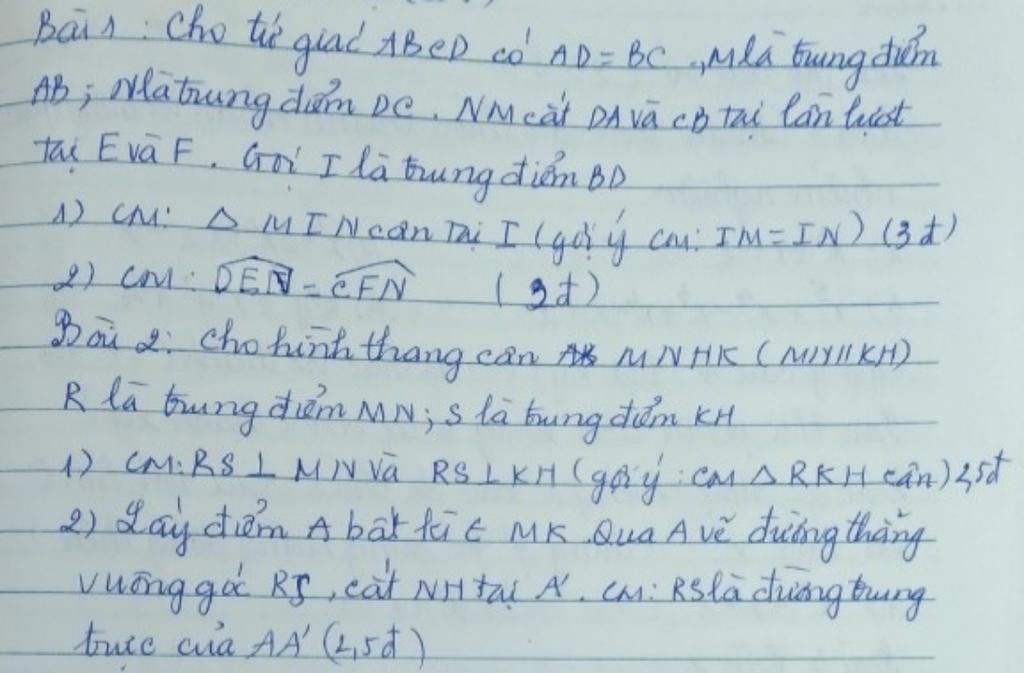 Bài 1 : Cho tứ giác ABCD có AD = BC, M là trung điểm
AB ; N là trung điểm DC. NM cắt DA và CB tại lần lượt
tại E và F. Gọi I là trung điểm BD
1) CM: △ MIN cân tại I (gợi ý CM: IM = IN) (3đ)
2) CM: DEN = CFN (2đ)
Bài 2: Cho hình thang cân MNHK (MN // KH)
R là trung điểm MN; S là trung điểm KH
1) CM: RS ⊥ MN và RS ⊥ KH (gợi ý : CM △ RKH cân) 2,5đ
2) Lấy điểm A bất kì ∈ MK. Qua A vẽ đường thẳng
vuông góc RS, cắt NH tại A'. CM: RS là đường trung
trực của AA' (2,5đ)